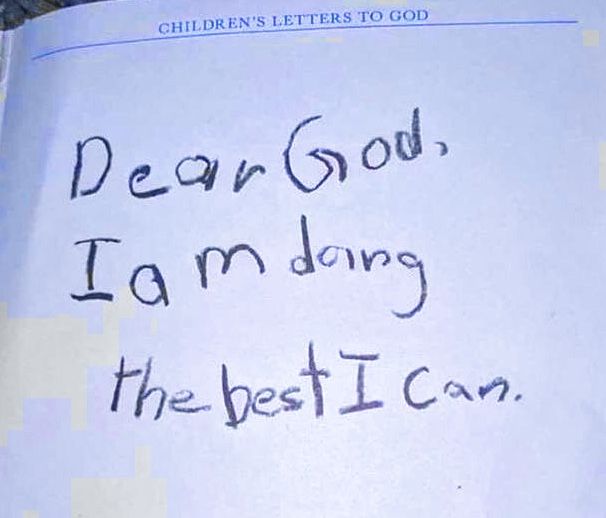 CHILDREN'S LETTERS TO GOD
Dear God,
I am doing
the best I can.